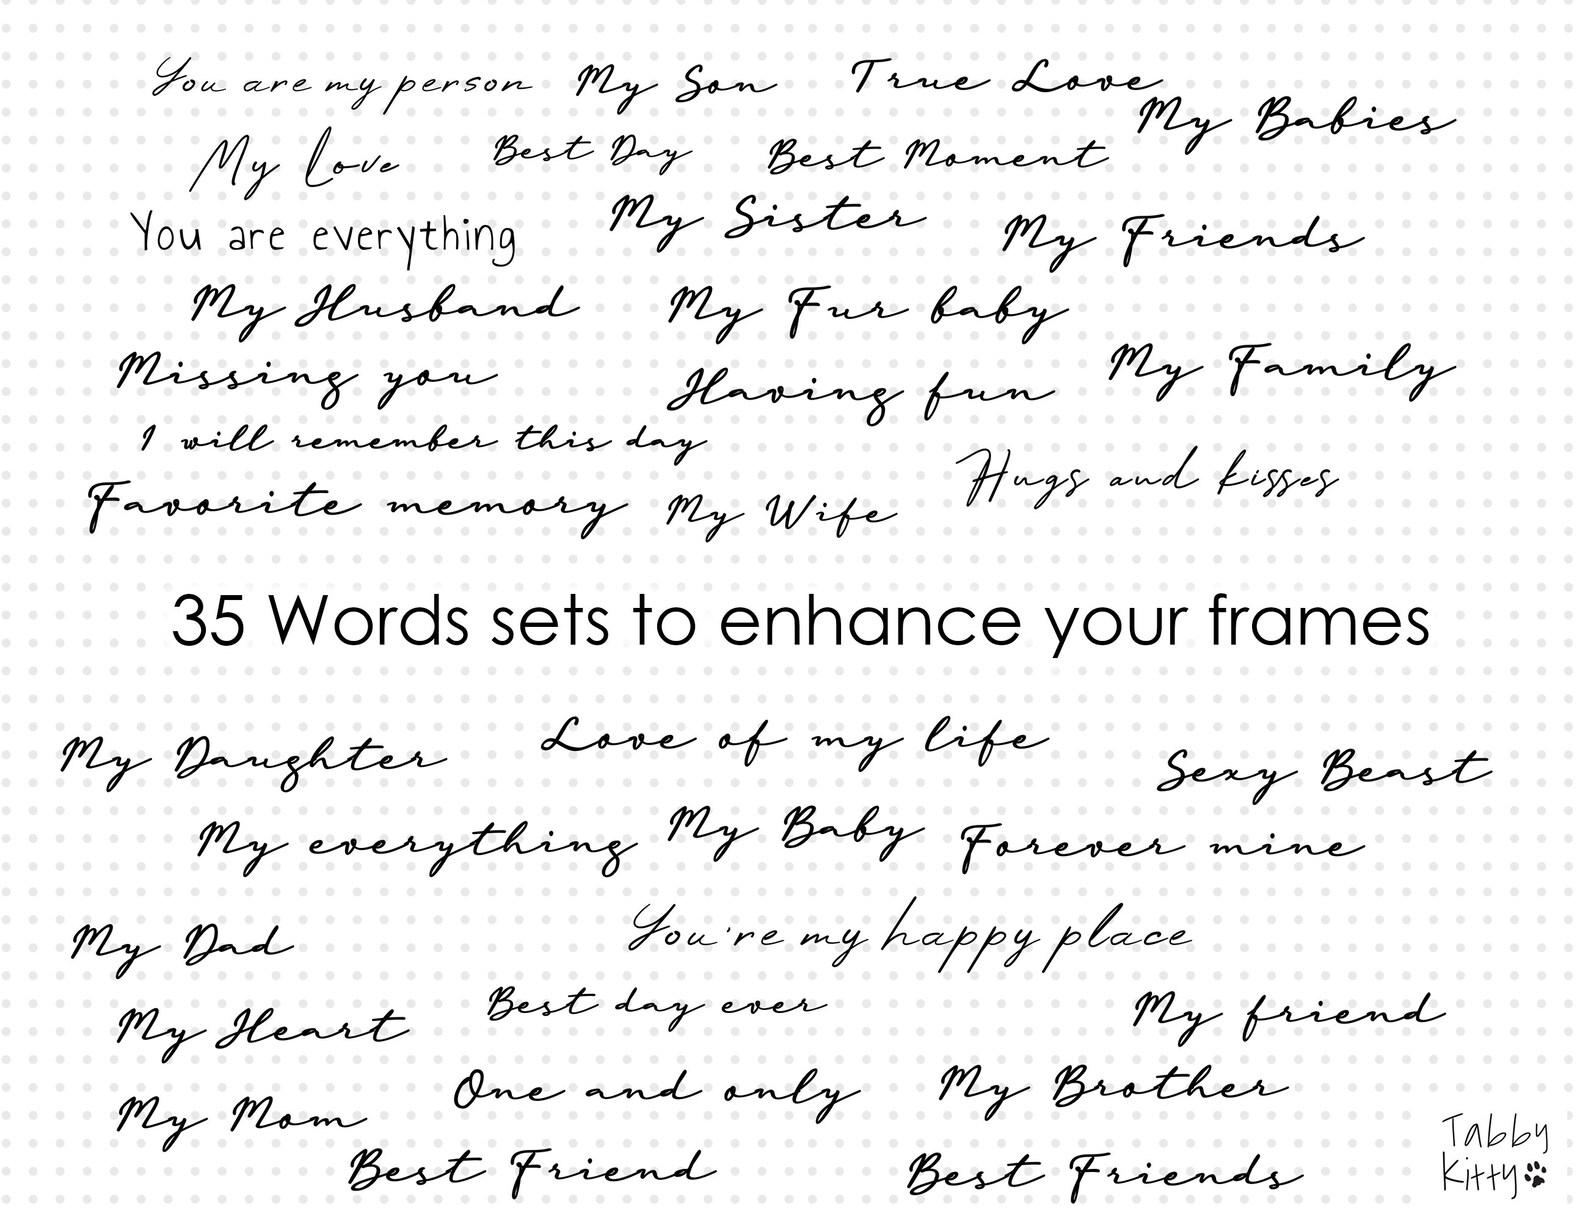 You are my person
My Son
True Love
My Babies
My Love
Best Day
Best Moment
You are everything
My Sister
My Friends
My Husband
My Fur baby
Missing you
Having fun
My Family
I will remember this day
Hugs and kisses
Favorite memory
My Wife
35 Words sets to enhance your frames
My Daughter
Love of my life
Sexy Beast
My everything
My Baby
Forever mine
My Dad
You're my happy place
My Heart
Best day ever
My friend
My Mom
One and only
My Brother
Best Friend
Best Friends
Tabby
Kitty